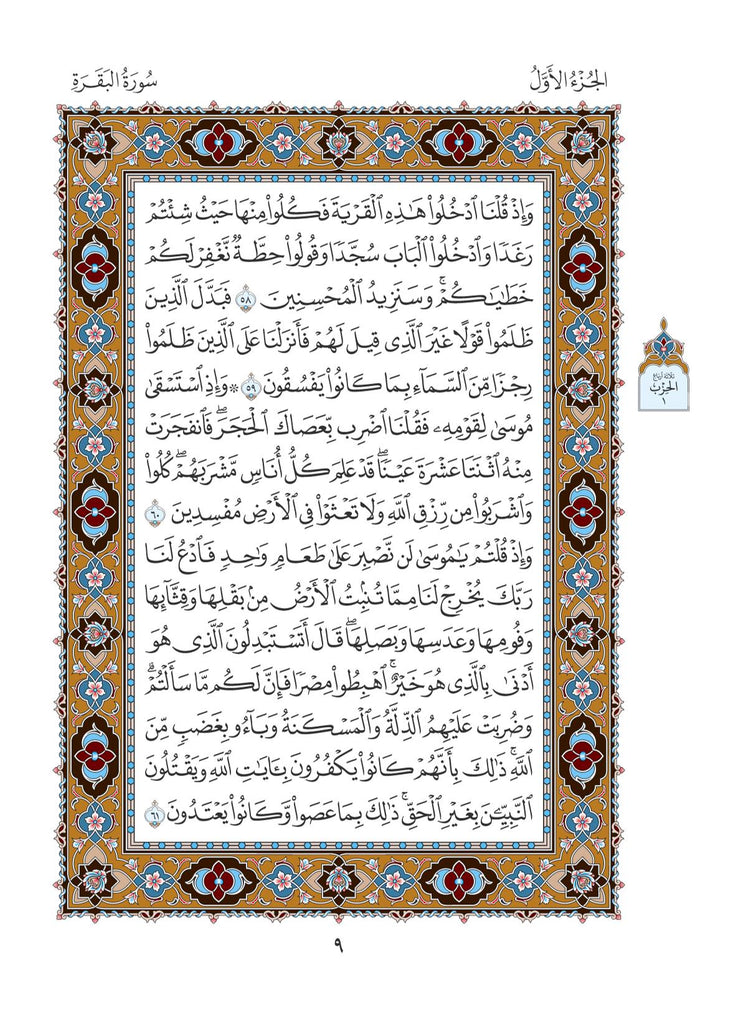 الجُزْءُ الأَوَّلُ
سُورَةُ البَقَرَةِ
وَإِذْ قُلْنَا ٱدْخُلُوا۟ هَـٰذِهِ ٱلْقَرْيَةَ فَكُلُوا۟ مِنْهَا حَيْثُ شِئْتُمْ
رَغَدًا وَٱدْخُلُوا۟ ٱلْبَابَ سُجَّدًا وَقُولُوا۟ حِطَّةٌ نَّغْفِرْ لَكُمْ
خَطَـٰيَـٰكُمْ ۚ وَسَنَزِيدُ ٱلْمُحْسِنِينَ ٥٨ فَبَدَّلَ ٱلَّذِينَ
ظَلَمُوا۟ قَوْلًا غَيْرَ ٱلَّذِى قِيلَ لَهُمْ فَأَنزَلْنَا عَلَى ٱلَّذِينَ ظَلَمُوا۟
رِجْزًا مِّنَ ٱلسَّمَآءِ بِمَا كَانُوا۟ يَفْسُقُونَ ٥٩ * وَإِذِ ٱسْتَسْقَىٰ
مُوسَىٰ لِقَوْمِهِۦ فَقُلْنَا ٱضْرِب بِّعَصَاكَ ٱلْحَجَرَ ۖ فَٱنفَجَرَتْ
مِنْهُ ٱثْنَتَا عَشْرَةَ عَيْنًا ۖ قَدْ عَلِمَ كُلُّ أُنَاسٍ مَّشْرَبَهُمْ ۖ كُلُوا۟
وَٱشْرَبُوا۟ مِن رِّزْقِ ٱللَّهِ وَلَا تَعْثَوْا۟ فِى ٱلْأَرْضِ مُفْسِدِينَ ٦٠
وَإِذْ قُلْتُمْ يَـٰمُوسَىٰ لَن نَّصْبِرَ عَلَىٰ طَعَامٍ وَٰحِدٍ فَٱدْعُ لَنَا
رَبَّكَ يُخْرِجْ لَنَا مِمَّا تُنۢبِتُ ٱلْأَرْضُ مِنۢ بَقْلِهَا وَقِثَّآئِهَا
وَفُومِهَا وَعَدَسِهَا وَبَصَلِهَا ۖ قَالَ أَتَسْتَبْدِلُونَ ٱلَّذِى هُوَ
أَدْنَىٰ بِٱلَّذِى هُوَ خَيْرٌ ۚ ٱهْبِطُوا۟ مِصْرًا فَإِنَّ لَكُم مَّا سَأَلْتُمْ ۗ
وَضُرِبَتْ عَلَيْهِمُ ٱلذِّلَّةُ وَٱلْمَسْكَنَةُ وَبَآءُو بِغَضَبٍ مِّنَ
ٱللَّهِ ۚ ذَٰلِكَ بِأَنَّهُمْ كَانُوا۟ يَكْفُرُونَ بِـَٔايَـٰتِ ٱللَّهِ وَيَقْتُلُونَ
ٱلنَّبِيِّـۧنَ بِغَيْرِ ٱلْحَقِّ ۚ ذَٰلِكَ بِمَا عَصَوا۟ وَّكَانُوا۟ يَعْتَدُونَ ٦١
ثلاثة أرباع
الحِزْبِ
١
٩